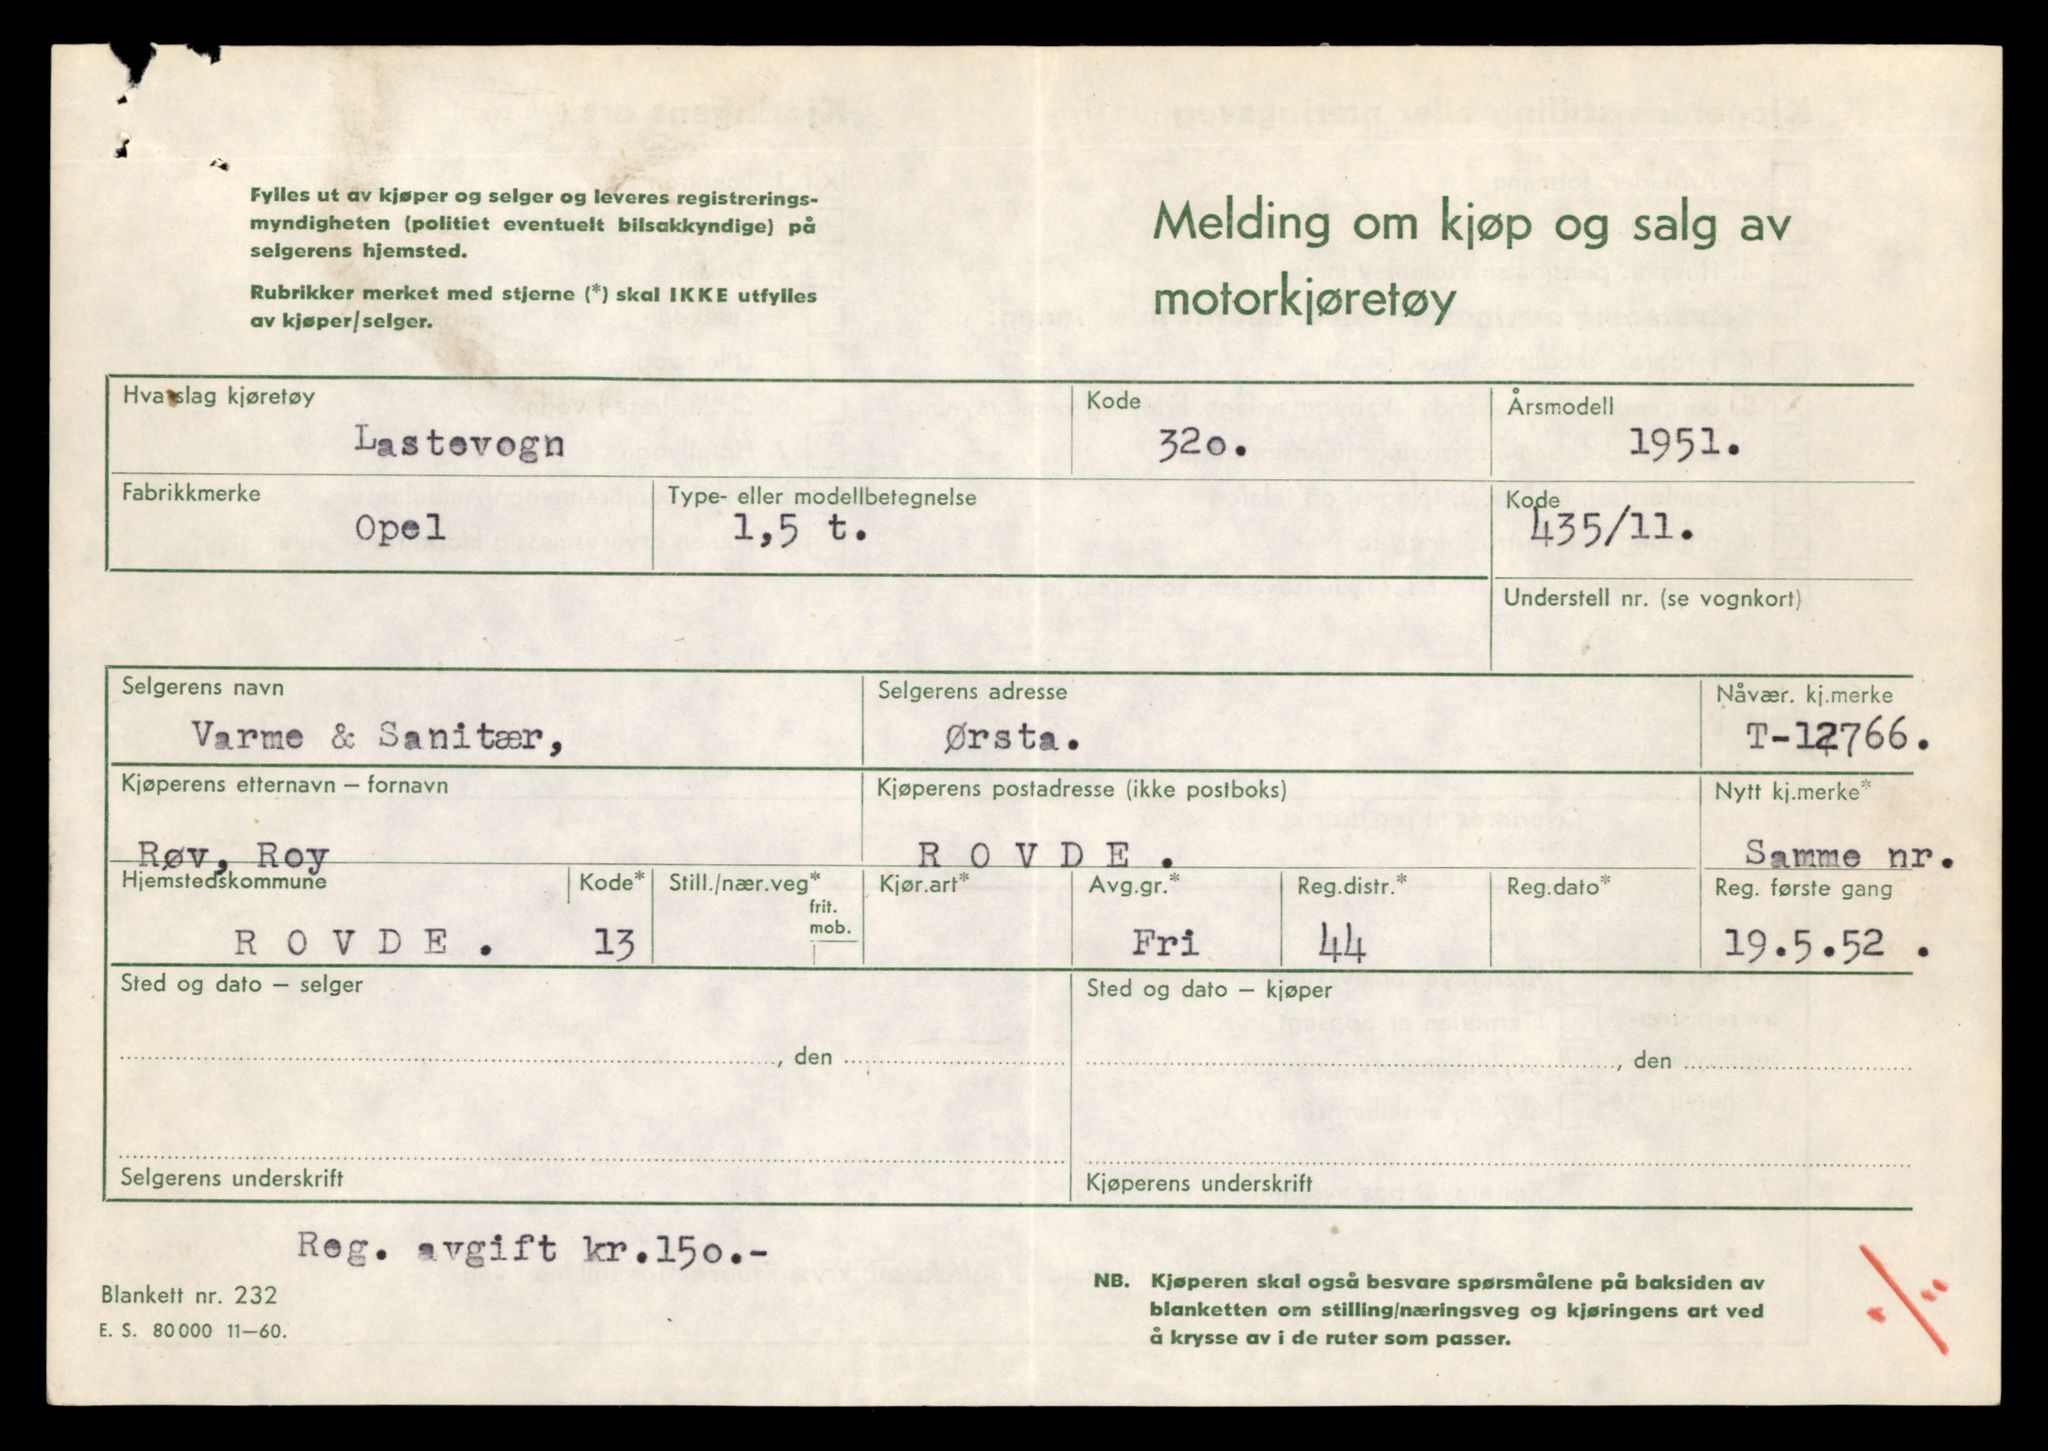 Fylles ut av kjøper og selger og leveres registrerings-
myndigheten (politiet eventuelt bilsakkyndige) på
selgerens hjemsted.
Rubrikker merket med stjerne (*) skal IKKE utfylles
av kjøper/selger.
Melding om kjøp og salg av
motorkjøretøy
Hva slag kjøretøy
Kode
Årsmodell
Lastevogn
32o.
1951.
Fabrikkmerke
Type- eller modellbetegnelse
Kode
Opel
1,5 t.
435/11.
Understell nr. (se vognkort)
Selgerens navn
Selgerens adresse
Nåvær. kj.merke
Varme & Sanitær,
Ørsta.
T-12766.
Kjøperens etternavn – fornavn
Kjøperens postadresse (ikke postboks)
Nytt kj.merke*
Røv, Roy
R O V D E .
Samme nr.
Hjemstedskommune
Kode*
Still./nær.veg*
frit.
mob.
Kjør.art*
Avg.gr.*
Reg.distr.*
Reg.dato*
Reg. første gang
R O V D E .
13
Fri
44
19.5.52 .
Sted og dato – selger
Sted og dato – kjøper
, den
, den
Selgerens underskrift
Kjøperens underskrift
Reg. avgift kr.15o.-
Blankett nr. 232
E. S. 80000 11—60.
NB. Kjøperen skal også besvare spørsmålene på baksiden av
blanketten om stilling/næringsveg og kjøringens art ved
å krysse av i de ruter som passer.